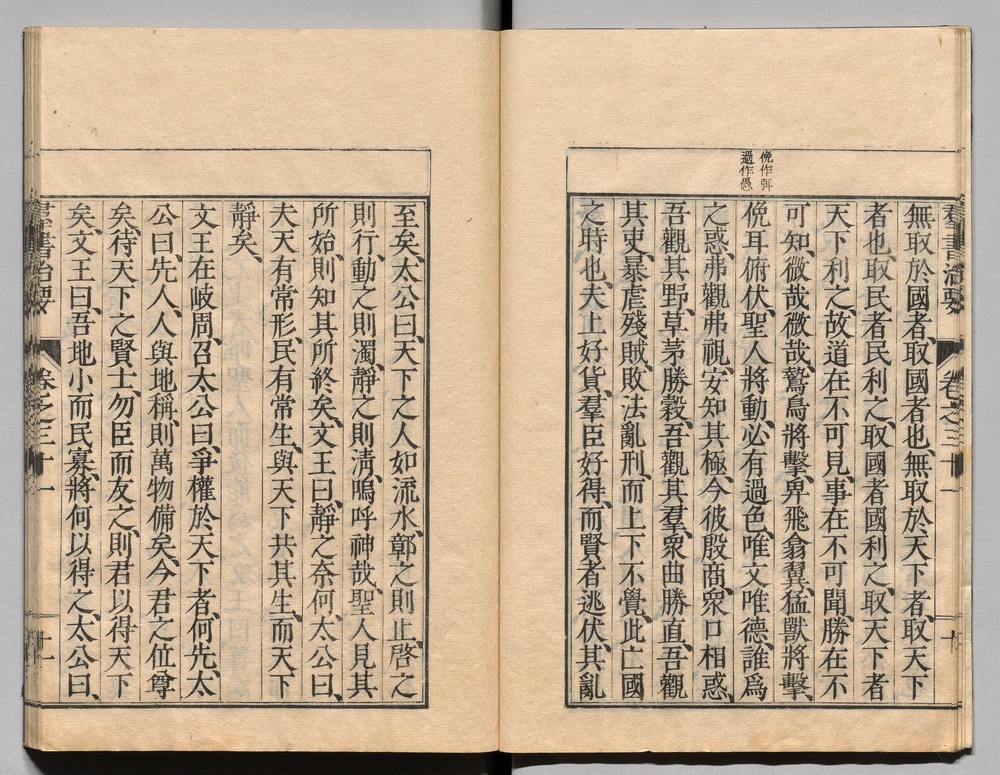 俛作弭
過作愚
羣書治要 卷之三十一 十
無取於國者、取國者也、無取於天下者、取天下
者也、取民者民利之、取國者國利之、取天下者
天下利之、故道在不可見、事在不可聞、勝在不
可知、微哉微哉、鷙鳥將擊、卑飛翕翼、猛獸將擊、
俛耳俯伏、聖人將動、必有過色、唯文唯德、誰爲
之惑、弗觀弗視、安知其極、今彼殷商、衆口相惑、
吾觀其野、草茅勝穀、吾觀其羣、衆曲勝直、吾觀
其吏、暴虐殘賊、敗法亂刑、而上下不覺、此亡國
之時也、夫上好貨、羣臣好得、而賢者逃伏、其亂
至矣、太公曰、天下之人如流水、鄣之則止、啓之
則行、動之則濁、靜之則淸、嗚呼神哉、聖人見其
所始、則知其所終矣、文王曰、靜之奈何、太公曰、
夫天有常形、民有常生、與天下共其生、而天下
靜矣、
文王在岐周、召太公曰、爭權於天下者、何先、太
公曰、先人、人與地稱、則萬物備矣、今君之位尊
矣、待天下之賢士、勿臣而友之、則君以得天下
矣、文王曰、吾地小而民寡、將何以得之、太公曰、
羣書治要 卷之三十一 十一